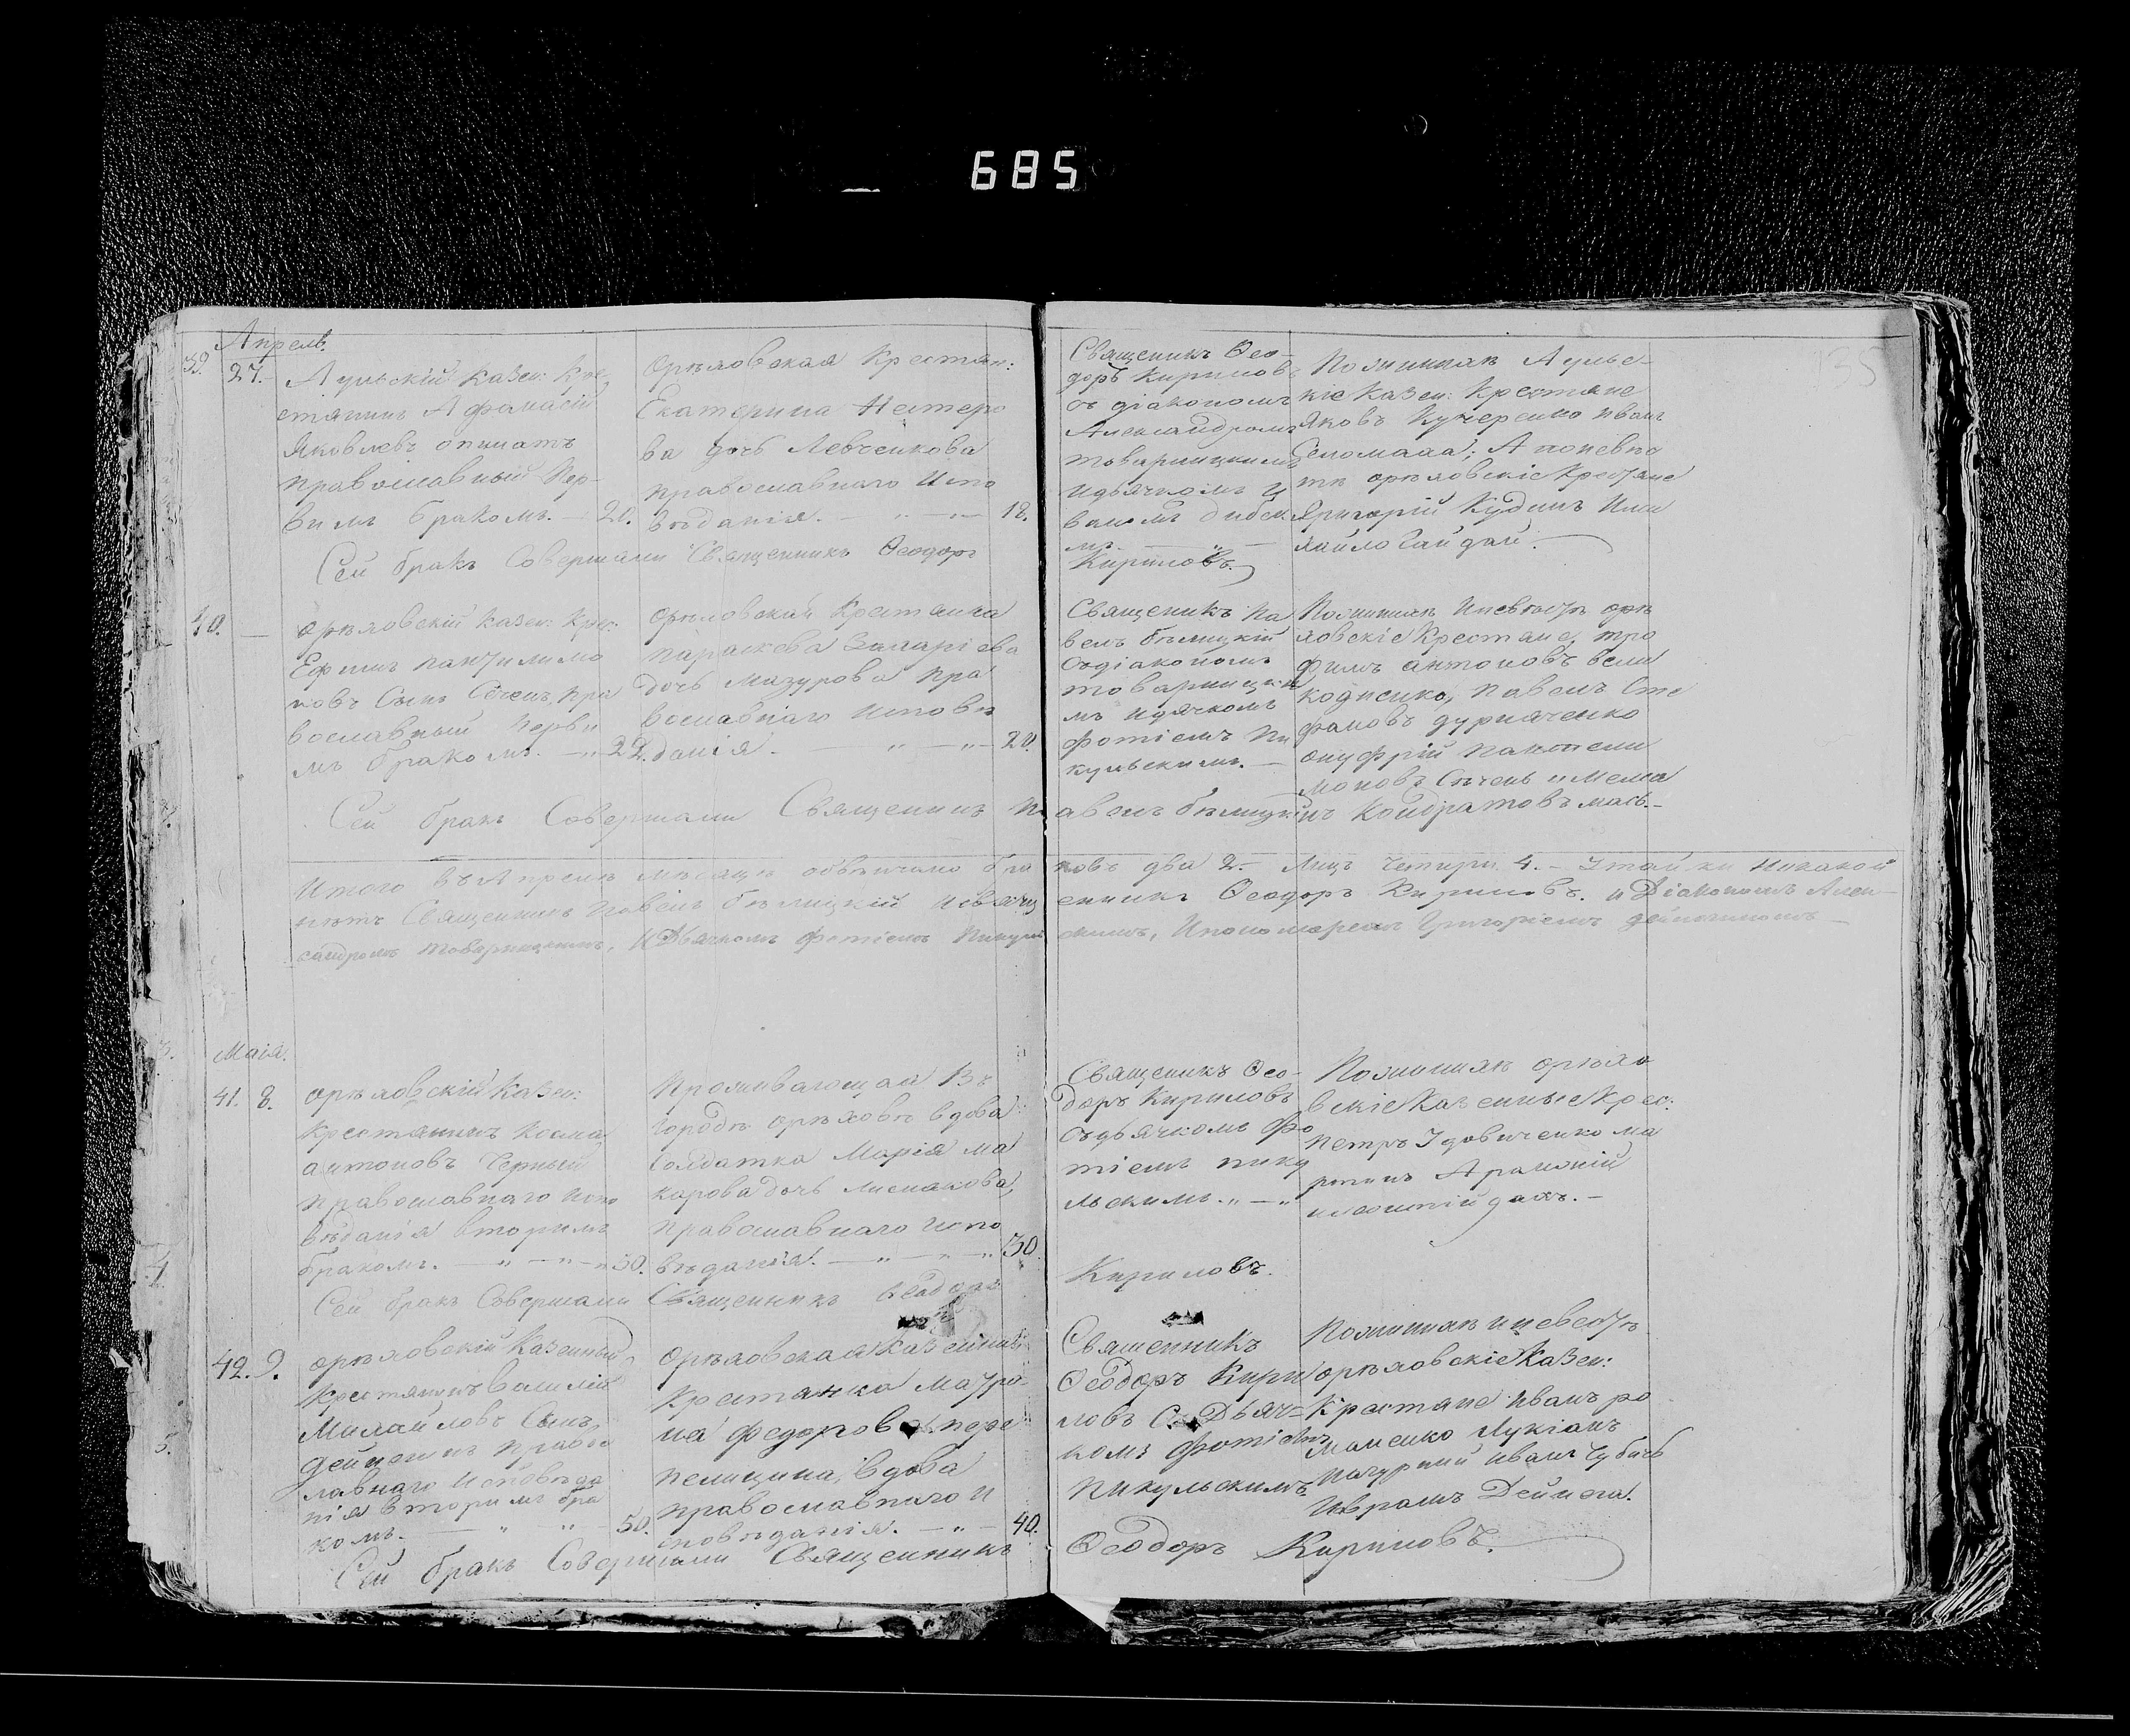 685
Апрель.
39. 27.
Аульскій казен: Кре
стянинъ Афанасій
Яковлевъ
православный Пер-
вимъ бракомъ. — 20.
Орѣховская Крестян:
Екатерина Нестеро
ва дочь Левченкова
православнаго Испо
вѣданія. — „ — „ — 18.
Священикъ Ѳео-
доръ Кириловъ
съ діакономъ
Александромъ
товарницкимъ
идьячкомъ И
ваномъ
мъ. — „ —
По женихѣ Аульс-
кіе казен: Крестяне
Яковъ Кучеренко Иванъ
Селомаха; А поневѣс
тѣ орѣховскіе Крестяне
Григорій Кудинъ Ими
хайло Гайдай.
Сей бракъ Совершали Священникъ Ѳеодоръ
Кириловъ.
40. —
орѣховскій казен: Крес:
Ефимъ пантилимо
новъ Сынъ Сѣчень, пра
вославный перви
мъ бракомъ. — „ 22.
орѣховская Крестянка
параскева Захаріева
дочь Мазурова пра
вославнаго исповѣ
данія. — „ — „ — 20.
Священикъ Па
велъ бѣлицкій
съ діакономъ
товарницки
мъ идячкомъ
фотіемъ Пи
кульскимъ. —
По женихѣ иневѣстѣ орѣ
ховскіе Крестяне, тро
фимъ антоновъ вели
кодненко, павелъ Сте
фановъ дурняченко
онуфрій пантели
моновъ Сѣчень
Кондратовъ
Сей бракъ Совершали Священикъ Павелъ бѣлицкій
Итого въ Апрелѣ мѣсяцѣ обвѣнчано браковъ два 2. — Лицъ четири 4. — Утайки никакой
нѣтъ Священикъ Павелъ бѣлицкій исвящеенникъ Ѳеодоръ Кириловъ. и Діакономъ Алек-
сандромъ товарницкимъ, и Дьячкомъ фотіемъ Пикульскимъ, Ипономаремъ Григоріемъ
Маія.
41. 8.
орѣховскій Казен:
крестянинъ Косма
антоновъ Черный
православнаго испо
вѣданія вторимъ
бракомъ. — „ — „ — „ 50.
Проживающая Въ
городѣ орѣховѣ вдова
солдатка Марія ма
карова дочь
православнаго испо
вѣданія. — „ — „ — „ 30.
Священикъ Ѳео-
доръ Кириловъ
съдьячкомъ фо
тіемъ пику
льскимъ. „ — „
По женихѣ орѣхо
вскіе Казенные Крес:
петръ Удовиченко ма
ртинъ
Сей бракъ Совершали Священникъ Ѳеодоръ
Кириловъ.
42. 9.
орѣховскій Казенный
Крестянинъ Василій
Михайловъ Сынъ,
правос
лавнаго Исповѣда
нія вторимъ бра
комъ. — „ — „ — 50.
орѣховская Казенная
Крестянка Матро
на федорова пере
пелицина, вдова
православнаго И
сповѣданія. — „ — 40.
Священникъ
Ѳеодоръ Кири
ловъ Съ Дьяч=
комъ фотіемъ
пикульскимъ.
По женихѣ иневестѣ
орѣховскіе Казен:
Крестяне Иванъ ро
маненко Лукіанъ
Иванъ
Дейнега.
Сей бракъ Совершали Священникъ
Ѳеодоръ Кириловъ.